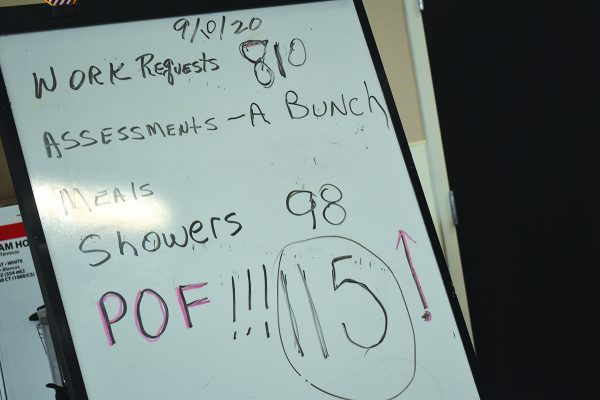 9/10/20
WORK Requests 810
ASSESSMENTS - A BUNCH
MEALS
Showers 98
POF !!! 115 !
AM HO